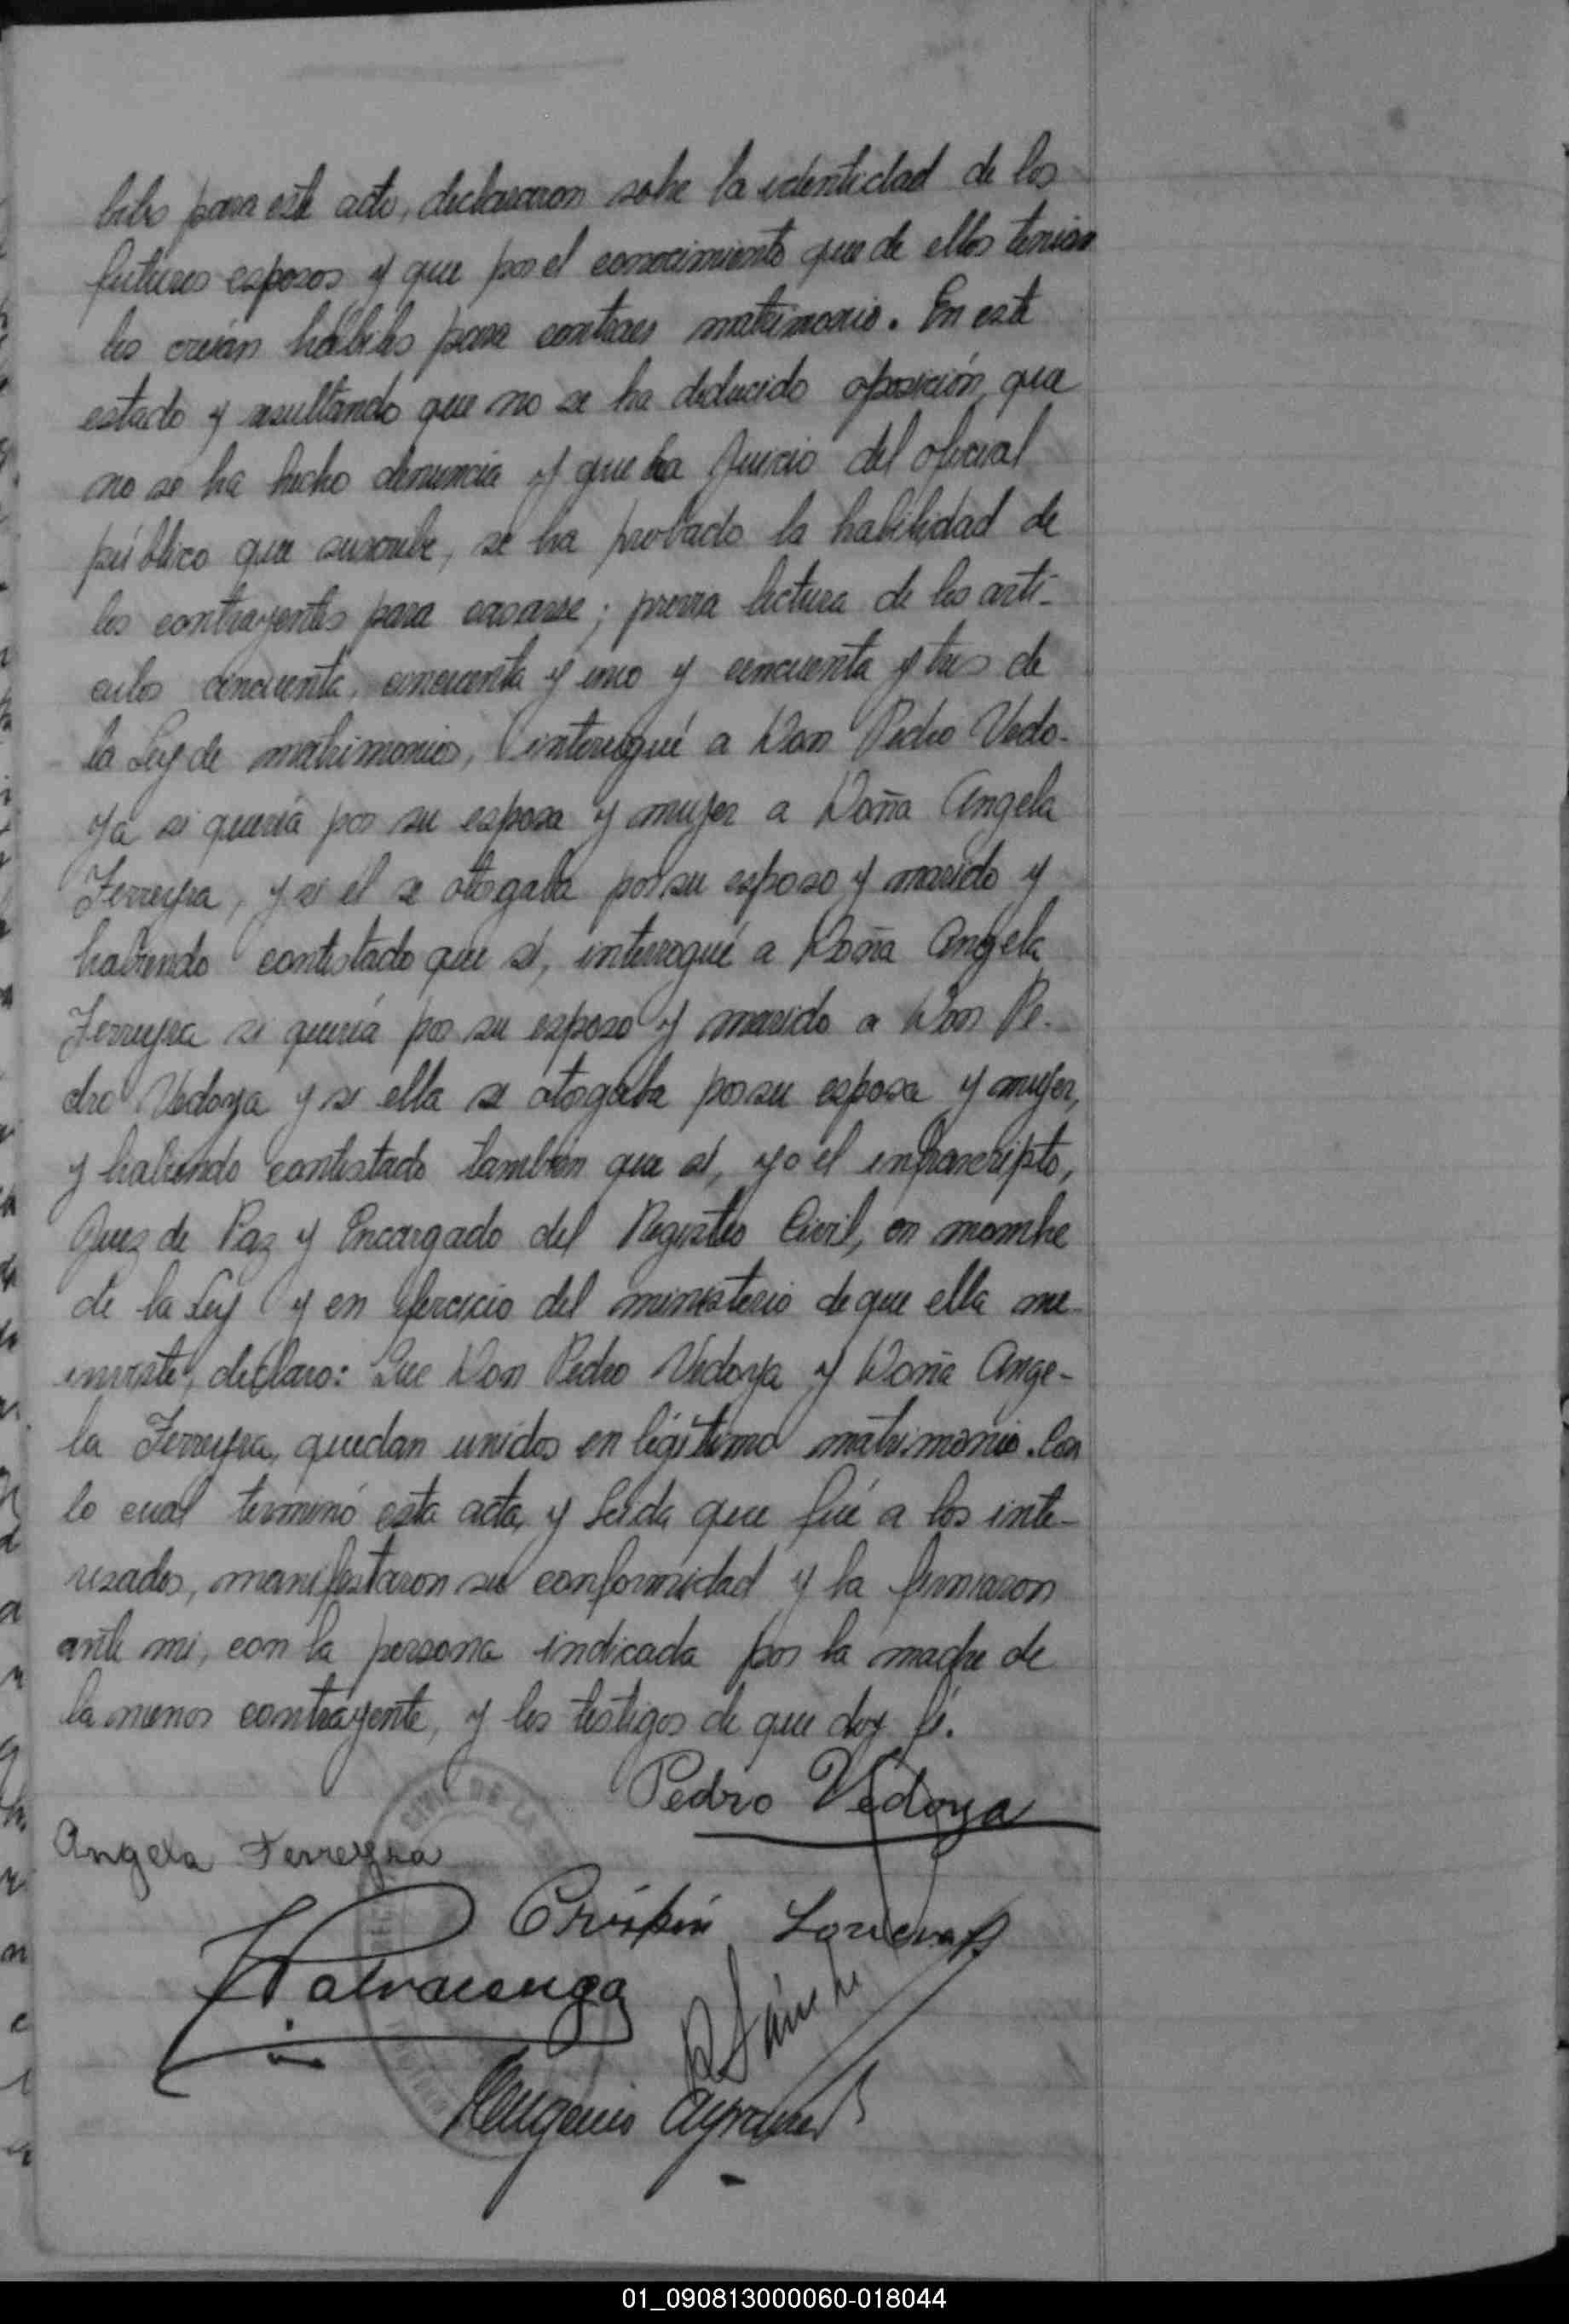 biles para este acto, declararon sobre la identidad de los
futuros esposos y que por el conocimiento que de ellos tenían
los creían hábiles para contraer matrimonio. En este
estado y resultando que no se ha deducido oposición, que
no se ha hecho denuncia y que a juicio del oficial
público que suscribe, se ha probado la habilidad de
los contrayentes para casarse; previa lectura de los artí-
culos cincuenta, cincuenta y uno y cincuenta y tres de
la Ley de matrimonios, interrogué a Don Pedro Vedo-
ya si quería por su esposa y mujer a Doña Angela
Ferreyra, y si el se otorgaba por su esposo y marido y
habiendo contestado que sí, interrogué a Doña Angela
Ferreyra si quería por su esposo y marido a Don Pe-
dro Vedoya y si ella se otorgaba por su esposa y mujer,
y habiendo contestado también que sí, yo el infrascripto,
Juez de Paz y Encargado del Registro Civil, en nombre
de la Ley y en ejercicio del ministerio de que ella me
inviste, declaro: Que Don Pedro Vedoya y Doña Ange-
la Ferreyra, quedan unidos en legítimo matrimonio. Con
lo cual terminó esta acta, y leída que fué a los inte-
resados, manifestaron su conformidad y la firmaron
ante mi, con la persona indicada por la madre de
la menor contrayente, y los testigos de que doy fé.
Pedro Vedoya
Angela Ferreyra
Crispín
Sánche
Eugenio
CIVIL DE LA
01_090813000060-018044